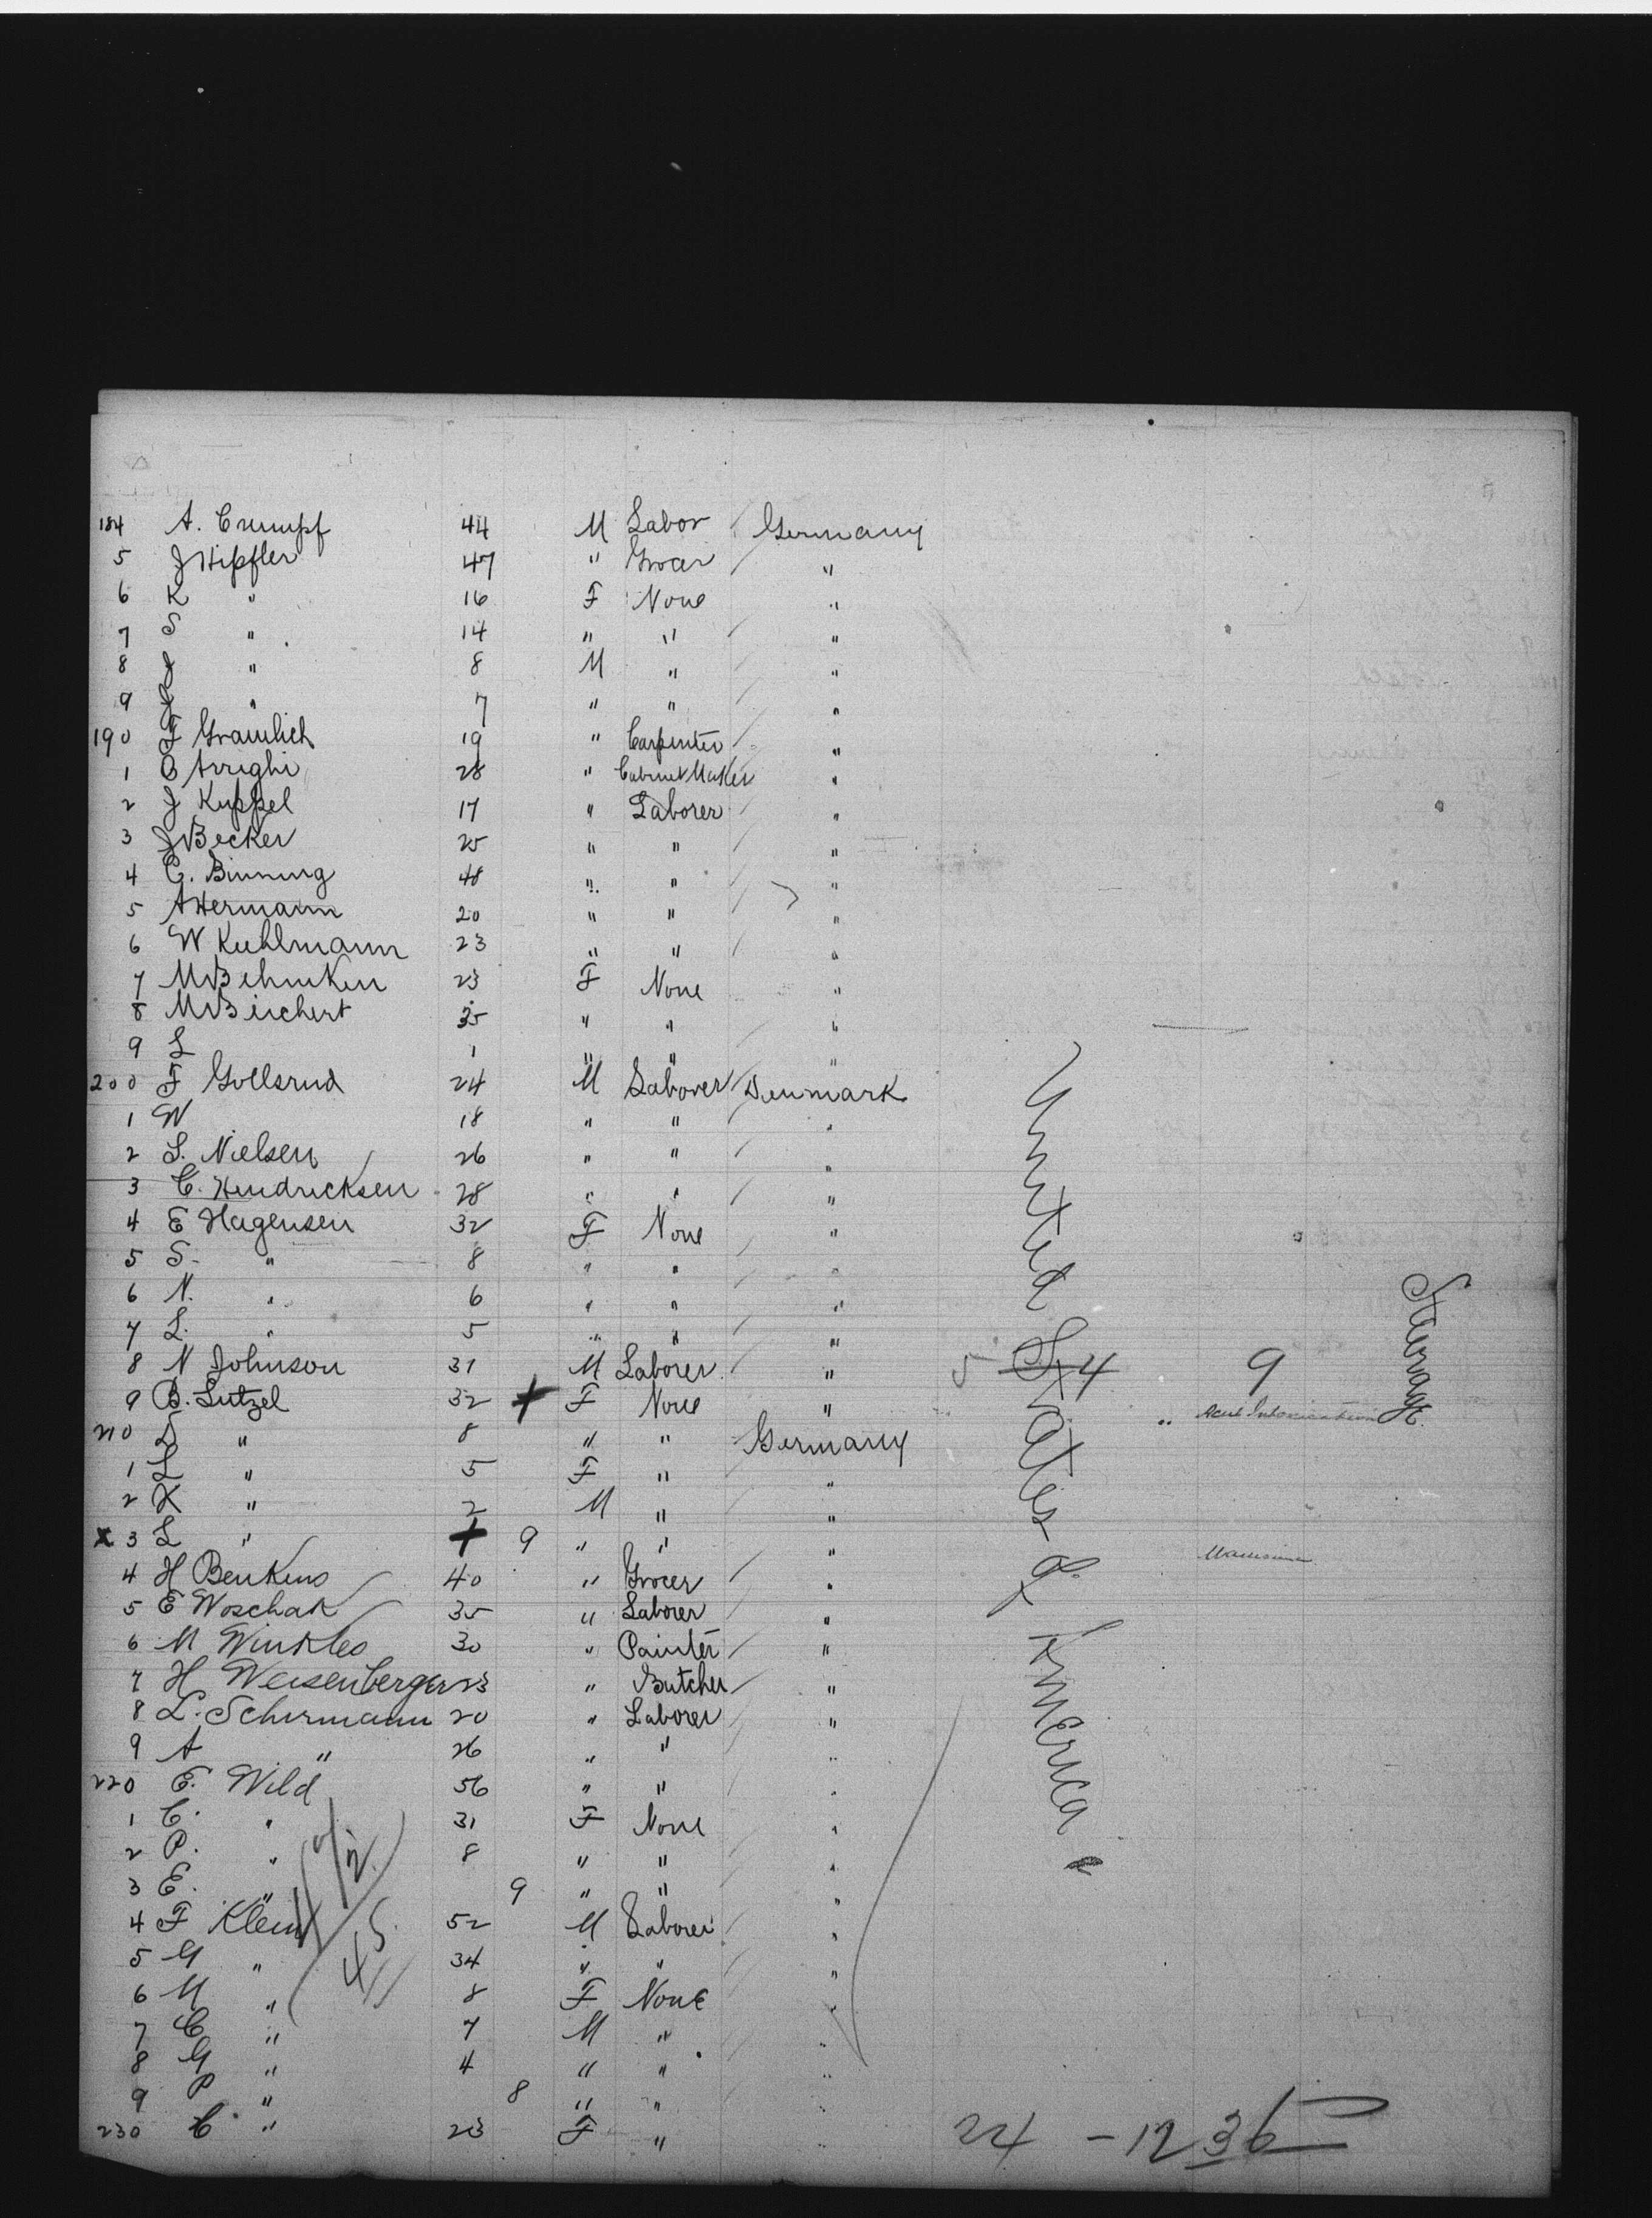 184 A. Crumpf 44 M Labor Germany
5 J Hipfler 47 " Grocer "
6 K " 16 F None "
7 S " 14 " " "
8 J " 8 M " "
9 J " 7 " " "
190 F Gramlich 19 " Carpenter "
1 O Arrighi 28 " Cabinet Maker "
2 J Kuppel 17 " Laborer "
3 J Becker 25 " " "
4 C. Binning 48 " " "
5 A Hermann 20 " " "
6 W Kuhlmann 23 " " "
7 M Behnken 23 F None "
8 M Birchert 35 " " "
9 L 1 " " "
200 F Gollsrud 24 M Laborer Denmark
1 W 18 " " "
2 L. Nielsen 26 " " "
3 C. Hendricksen 28 " " "
4 E Hagensen 32 F None "
5 S. " 8 " " "
6 N. " 6 " " "
7 L. " 5 " " "
8 N Johnson 31 M Laborer "
9 B. Lutzel 32 + F None "
210 " 8 " " Germany
1 L " 5 F " "
2 K " 2 M " "
x 3 L " + 9 " " "
4 H Benkens 40 " Grocer "
5 E Woschak 35 " Laborer "
6 M Winkles 30 " Painter "
7 H Weisenberger 23 " Butcher "
8 L. Schirmann 20 " Laborer "
9 A " 26 " " "
220 E. Wild 56 " " "
1 C. " 31 F None "
2 P. " 8 " " "
3 E. " 9 " " "
4 F Klein 52 M Laborer "
5 G " 34 " " "
6 M " 8 F None "
7 C " 7 M " "
8 G " 4 " " "
9 P " 8 " " "
230 C " 23 F " "
United States of America
5 4 9
Steerage.
24 - 12 36